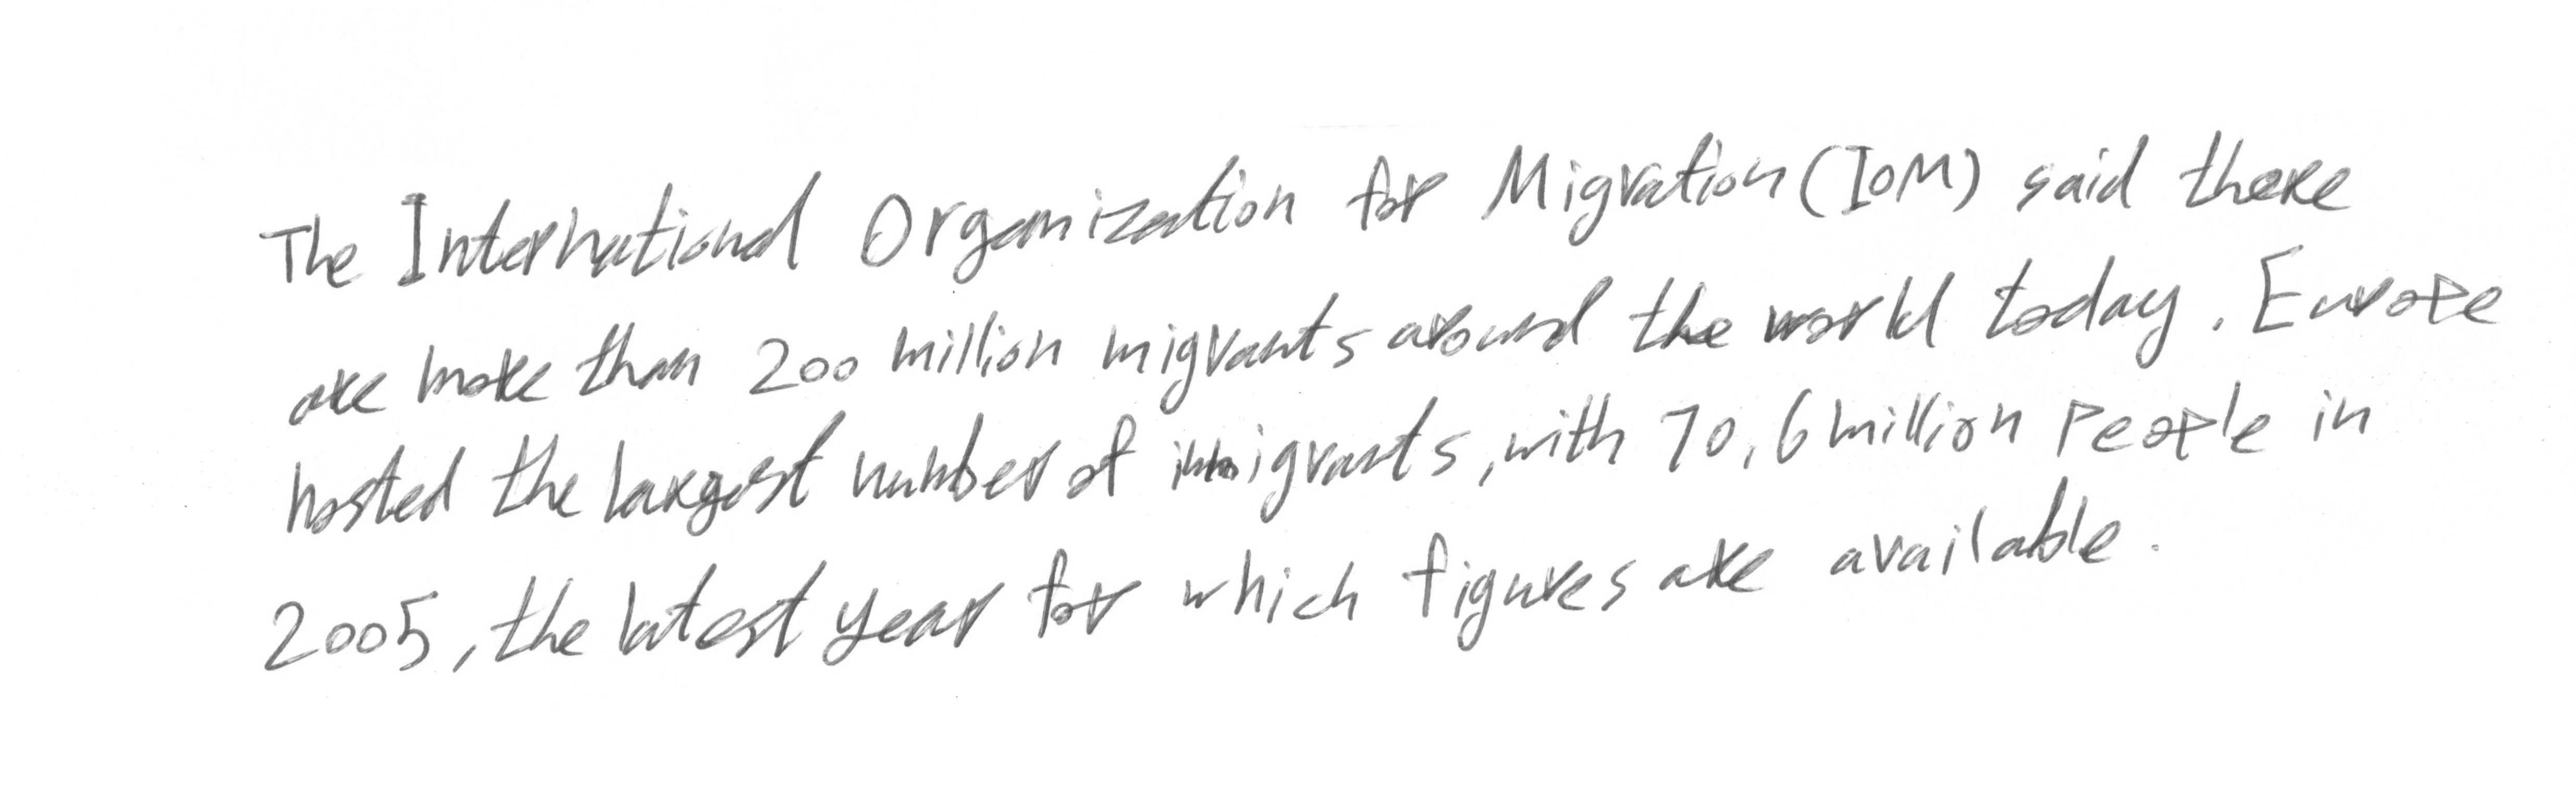 The International Organization for Migration (IOM) said there
are more than 200 million migrants around the world today. Europe
hosted the largest number of immigrants, with 70,6 million people in
2005, the latest year for which figures are available.